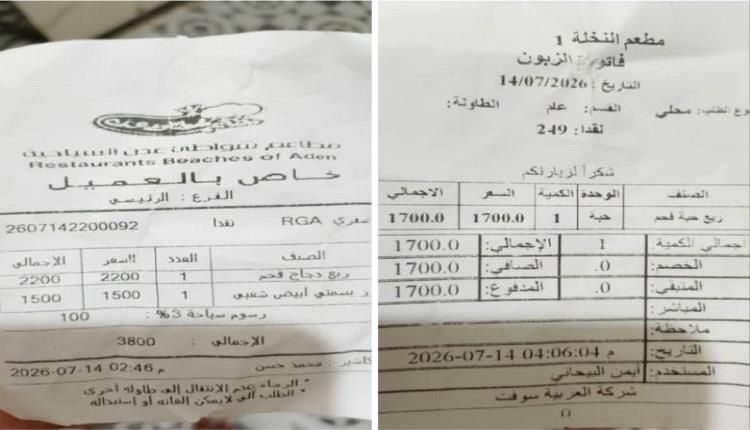 مطاعم شواطئ عدن السياحية
Restaurants Beaches of Aden
خاص بالعميل
الفرع : الرئيسي
سفري RGA نقدا 2607142200092
الصنف العدد السعر الإجمالي
ربع دجاج فحم 1 2200 2200
ز بسمتي ابيض شعبي 1 1500 1500
رسوم سياحة 3% : 100
الإجمالي : 3800
كاشير : محمد حسن 2026-07-14 02:46 م
* الرجاء عدم الإنتقال إلى طاولة أخرى
* الطلب آلي لايمكن الغائه أو استبداله
مطعم النخلة 1
الزبون
التاريخ : 14/07/2026
نوع الطلب: محلي القسم: عام الطاولة:
نقدا: 249
شكرا لزيارتكم
الصنف الوحدة الكمية السعر الاجمالي
ربع حبة فحم حبة 1 1700.0 1700.0
اجمالي الكمية: 1 الإجمالي: 1700.0
الخصم: .0 الصافي: 1700.0
المتبقي: .0 المدفوع: 1700.0
المباشر:
ملاحظة:
التاريخ: 2026-07-14 04:06:04 م
المستخدم: أيمن البيحاني
شركة العربية سوفت
0